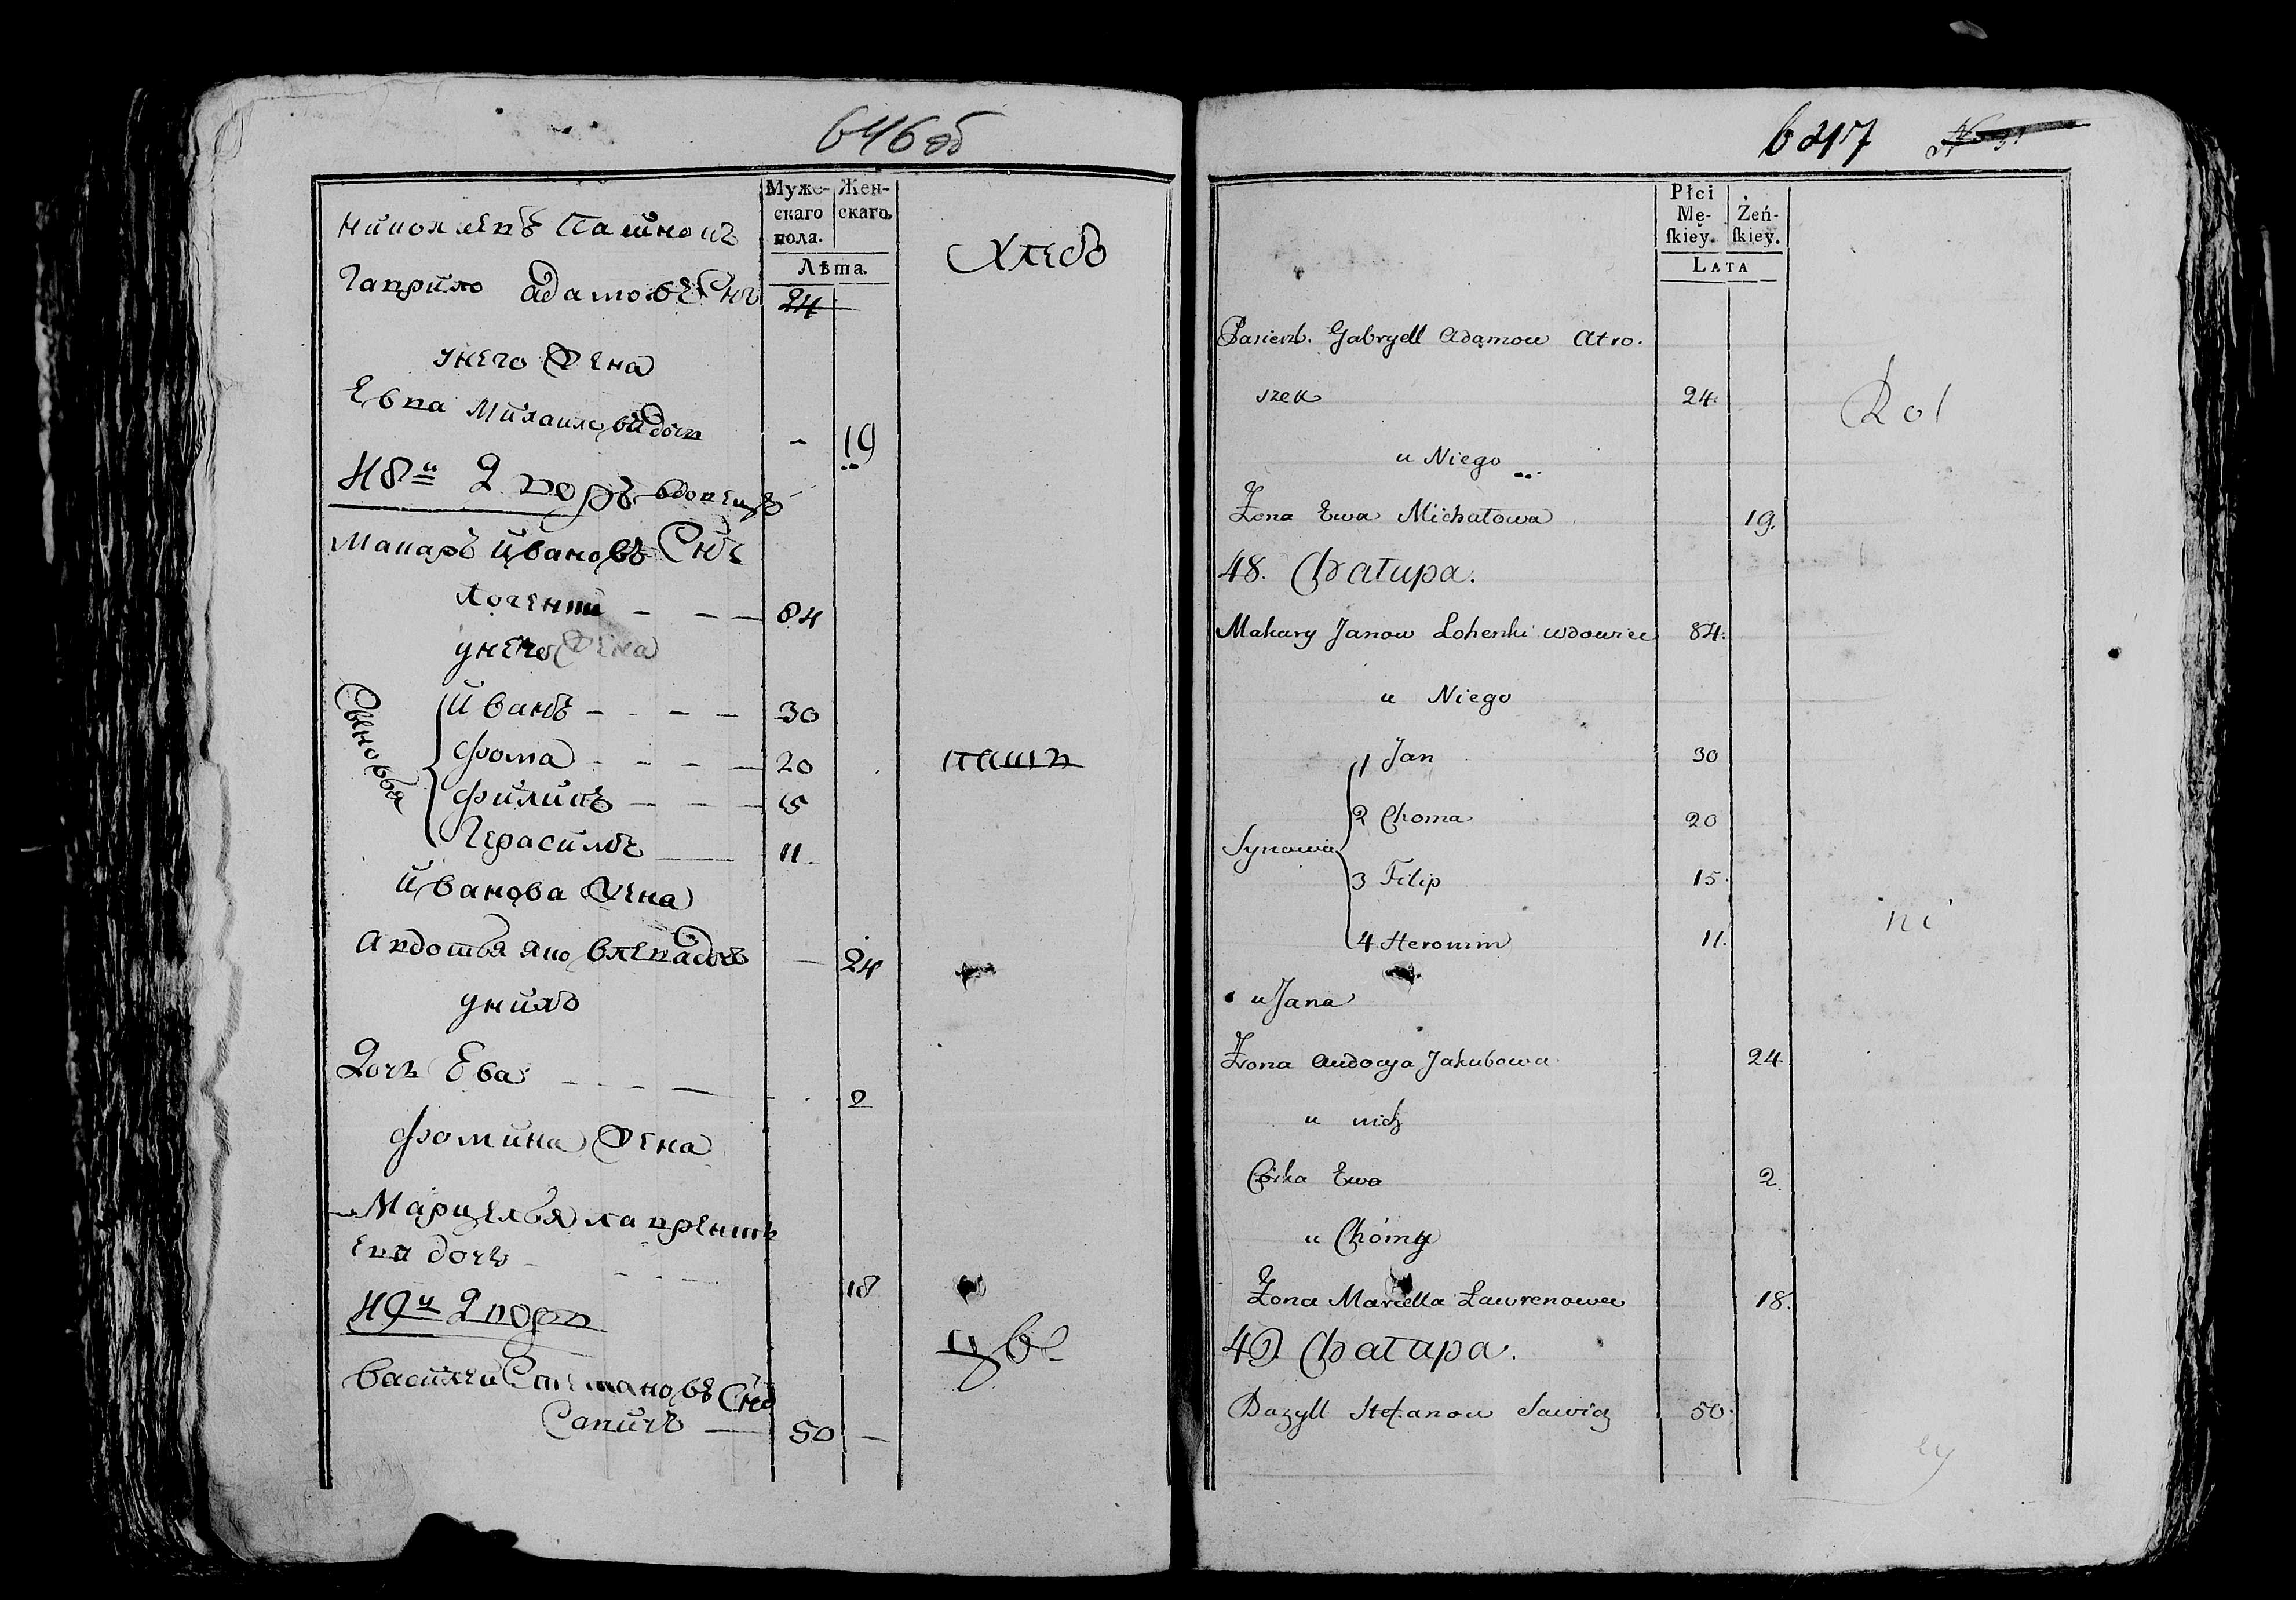 646 об
Муже-
скаго
пола.
Жен-
скаго
Лѣта.
Хлебо
Гаврило адамовъ Снъ 24
унего Жена
Евва Михаиловй дочь 19
48й Дворъ вдовецъ
Макаръ Ивановъ Снъ
Логенки 84
унего Жена
Сыновья
Иванъ 30
Фома 20
Филипъ 15
Герасимъ 11
паш
Иванова Жена
Авдотья Яковлева дочь 24
унихъ
Дочь Ева 2
Фомина Жена
Марцелья Лаврентьева дочь 18
49й Дворъ
Василей Степановъ Снъ
Савичъ 50
647
Płci
Mę-
skiey.
Żeń-
skiey.
LATA
Pasierb. Gabryell Adamow Atro.
szek 24.
Rol
u Niego
Zona Ewa Michałowa 19.
48. Chatupa.
Makary Janow Lohenki wdowiec 84.
u Niego
Synowie
1 Jan 30
2 Choma 20
3 Filip 15.
4 Heronim 11.
ni
u Jana
Zona Audocya Jakubowa 24
u nich
Córka Ewa 2.
u Chómy
Zona Marcella Lawrenowa 18.
49 Chatupa.
Bazyll Stefanow Sawicz 50.